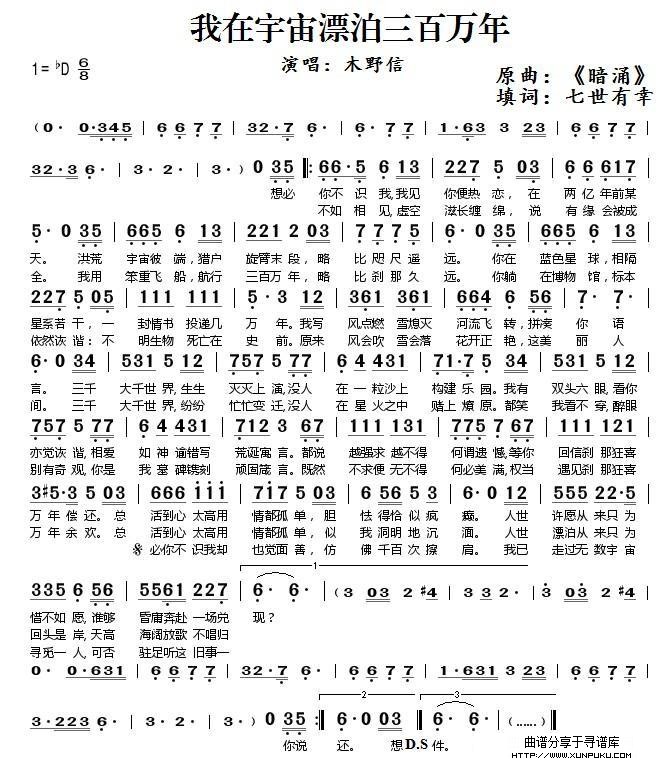 我在宇宙漂泊三百万年
演唱：木野信
1=ᵇD 6/8
原曲：《暗涌》
填词：七世有幸
(0· 0·345 | 6 6 7 7 | 32·7 6· | 6 6 7 7 | 1·63 3 23 | 6 6 7 7 |
32·3 6· | 3·2· | 3·2· | 3·) 0 35 |: 66·5 6 13 | 227 5 03 | 6 6 617 |
想必 你不识我,我见 你便热恋，在 两亿年前某
不如相见,虚空 滋长缠绵，说 有缘会被成
5·0 35 | 665 6 13 | 221 2 03 | 7 7 7 5 | 5·0 35 | 665 6 13 |
天。洪荒 宇宙彼端,猎户 旋臂末段，略 比咫尺遥 远。你在 蓝色星球,相隔
全。我用 笨重飞船,航行 三百万年，略 比刹那久 远。你躺 在博物馆,标本
227 5 05 | 111 111 | 5·3 12 | 361 361 | 664 6 56 | 7·7· |
星系若干，一 封情书投递几 万年。我写 风点燃雪熄灭 河流飞转,拼凑 你语
依然诙谐：不 明生物死亡在 史前。原来 风会吹雪会落 花开正艳,这美 丽人
6·0 34 | 531 5 12 | 757 5 77 | 6 4 431 | 71·7 5 34 | 531 5 12 |
言。三千 大千世界,生生 灭灭上演,没人 在一粒沙上 构建乐园。我有 双头六眼,看你
间。三千 大千世界,纷纷 忙忙变迁,没人 在星火之中 赌上燎原。都笑 我看不穿,醉眼
757 5 77 | 6 4 431 | 712 3 67 | 111 111 | 712 3 67 | 111 111 |
亦觉诙谐,相爱 如神谕借写 荒诞寓言。都说 越强求越不得 何谓遗憾,等你 回信刹那狂喜
别有奇观,你是 我墓碑镌刻 顽固箴言。既然 不求便无不得 何必美满,权当 遇见刹那狂喜
3#5·3 5 03 | 666 111 | 717 5 03 | 6 56 5 56 | 6·0 12 | 555 22·5 |
万年偿还。总 活到心太高用 情都孤单，胆 怯得恰似疯 癫。人世 许愿从来只为
万年余欢。总 活到心太高用 情都孤单，似 我洞明地沉 湎。人世 漂泊从来只为
𝄋必你不识我却 也觉面善，仿 佛千百次擦 肩。我已 走过无数宇宙
335 6 56 | 5561 227 | 6·6· | (3 03 03 2 #4 | 3 03 03 2 #4 |
惜不如愿,谁够 昏庸奔赴一场兑 现？
回头是岸,天高 海阔放歌不唱归
寻觅一人,可否 驻足听这旧事一
0·0·631 | 6 6 7 7 | 32·7 6· | 6 6 7 7 | 1·631 3 23 | 6 6 7 7 |
3·223 6· | 3·2· | 3·2· | 3·) 0 35 :| 6·0 03 :| 6·6· | (……) |
你说 还。想D.S件。
曲谱分享于寻谱库
HTTP://WWW.XUNPUKU.COM